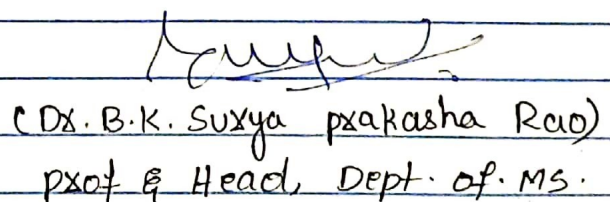 (Dr. B.K. Surya prakasha Rao)
prof & Head, Dept. of. MS.